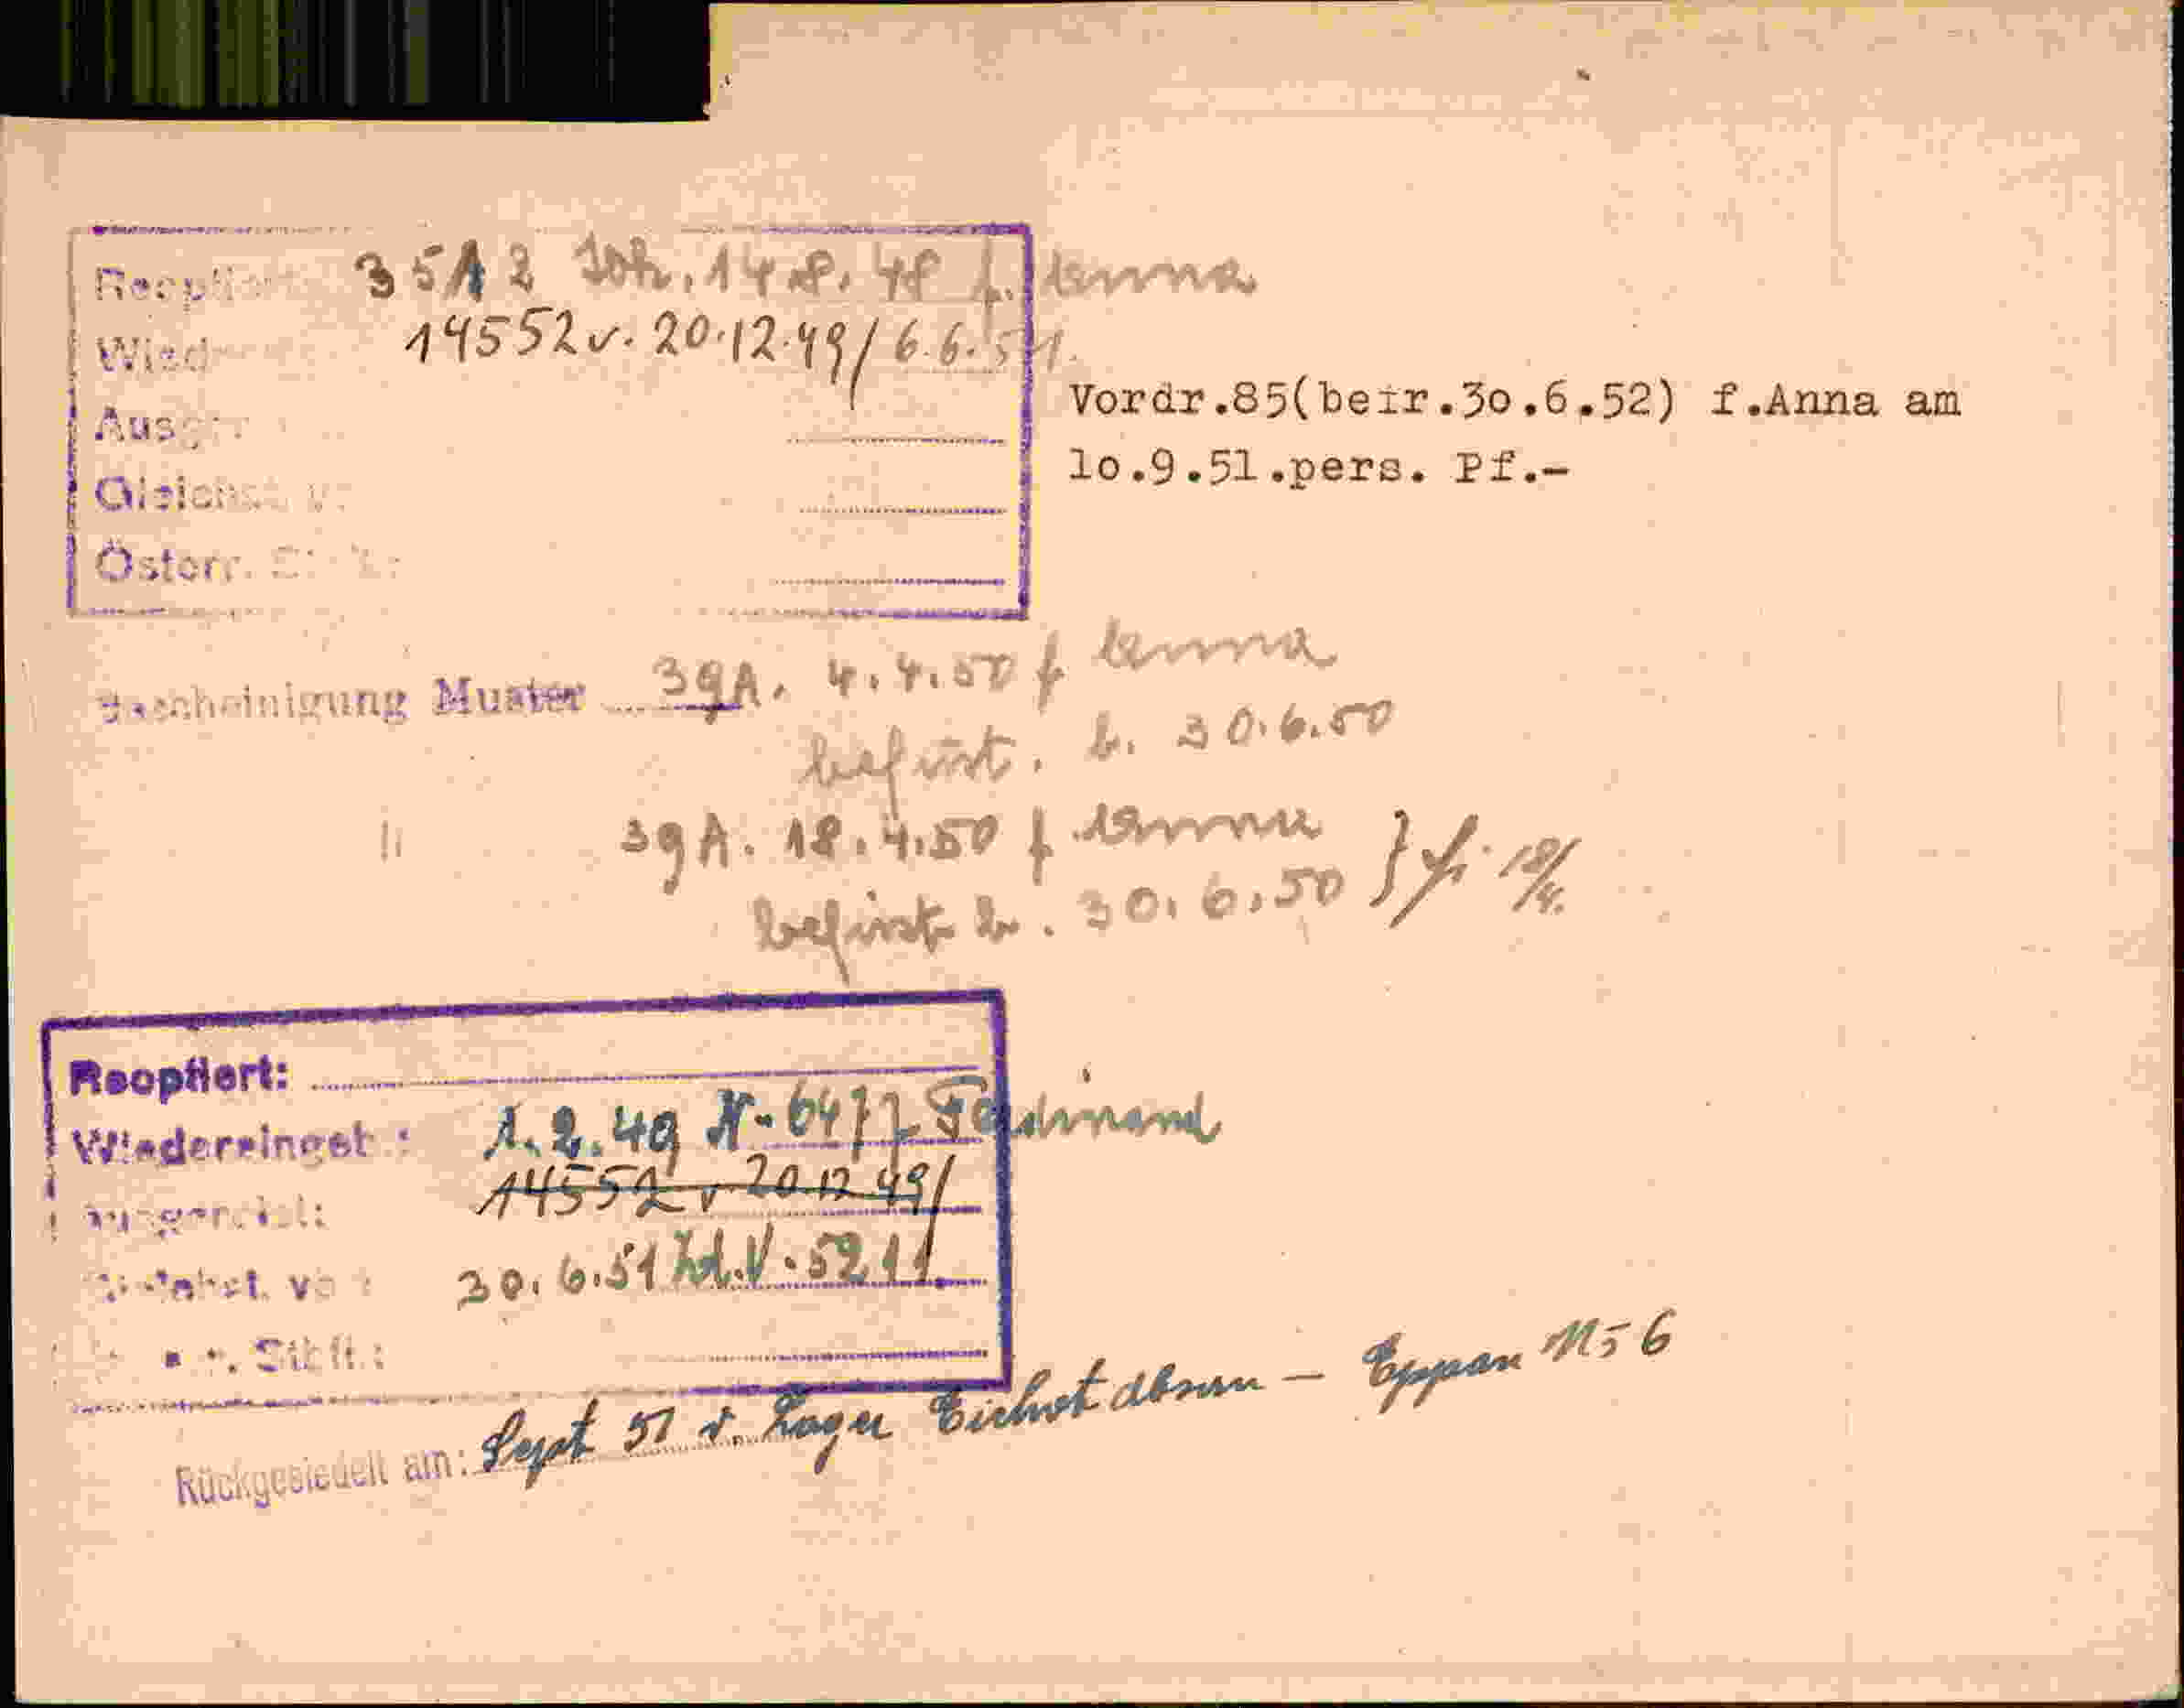 Reoptiert 35A2 Joh. 14.8.48 f. Anna
Wied 14552 v. 20.12.49/6.6.51.
Ausger
Gleichst. v.
Österr. St
Vordr.85(beir.30.6.52) f.Anna am
10.9.51.pers. Pf.-
Bescheinigung Muster 39A. 4.4.50 f Anna
befrist. b. 30.6.50
" 39A. 18.4.50 f Anna
befrist b. 30.6.50 } 18/4.
Reoptiert:
Wiedereingst.: 1.2.49 N-6477 Ferdinand
Ausgereist: 14552 v 20.12.49/
Gleichst. v 30.6.51 V.5211
Stbft.:
Rückgesiedelt am: Sept 51 v. Lager Eichat Absam - Eppan M56